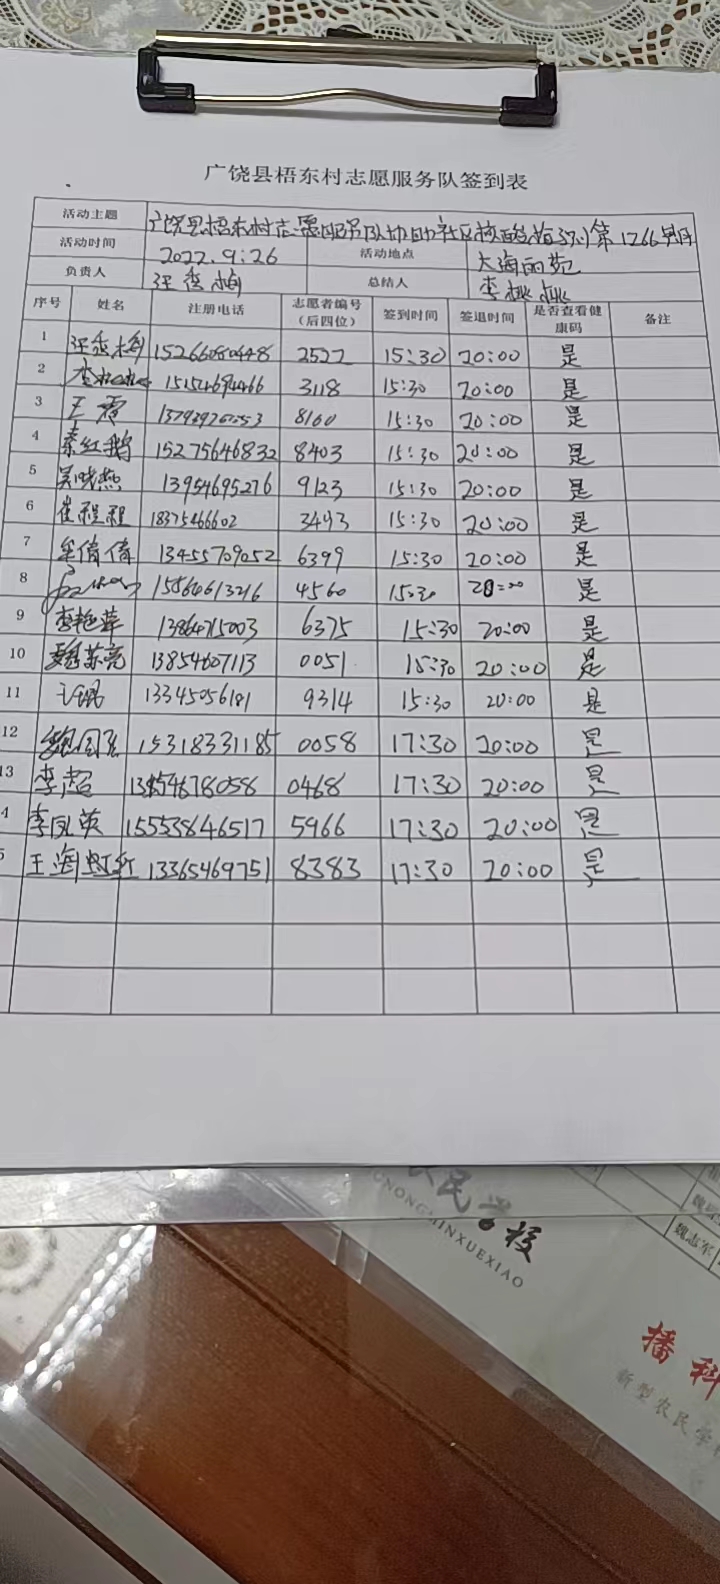 广饶县梧东村志愿服务队签到表
活动主题 广饶县梧东村志愿服务队协助社区核酸检测第1266期
活动时间 2022.9.26 活动地点 大海丽苑
负责人 汪秀梅 总结人 李桃桃
序号 姓名 注册电话 志愿者编号（后四位） 签到时间 签退时间 是否查看健康码 备注
1 汪秀梅 15266080448 2522 15:30 20:00 是
2 3118 15:30 20:00 是
3 王霞 8160 15:30 20:00 是
4 秦红鹅 15275646832 8403 15:30 20:00 是
5 吴晓燕 13954695276 9123 15:30 20:00 是
6 崔程程 18375466602 3493 15:30 20:00 是
7 牟倩倩 13455709052 6399 15:30 20:00 是
8 15560613216 4560 15:30 20:00 是
9 李艳萍 13864715003 6375 15:30 20:00 是
10 魏苏亮 13854607113 0051 15:30 20:00 是
11 13345056181 9314 15:30 20:00 是
12 15318331185 0058 17:30 20:00 是
13 李超 0468 17:30 20:00 是
4 李凤英 15553846517 5966 17:30 20:00 是
5 王海虹 13365469751 8383 17:30 20:00 是
农民学校
ONONGMINXUEXIAO
魏志军
播科
新型农民学